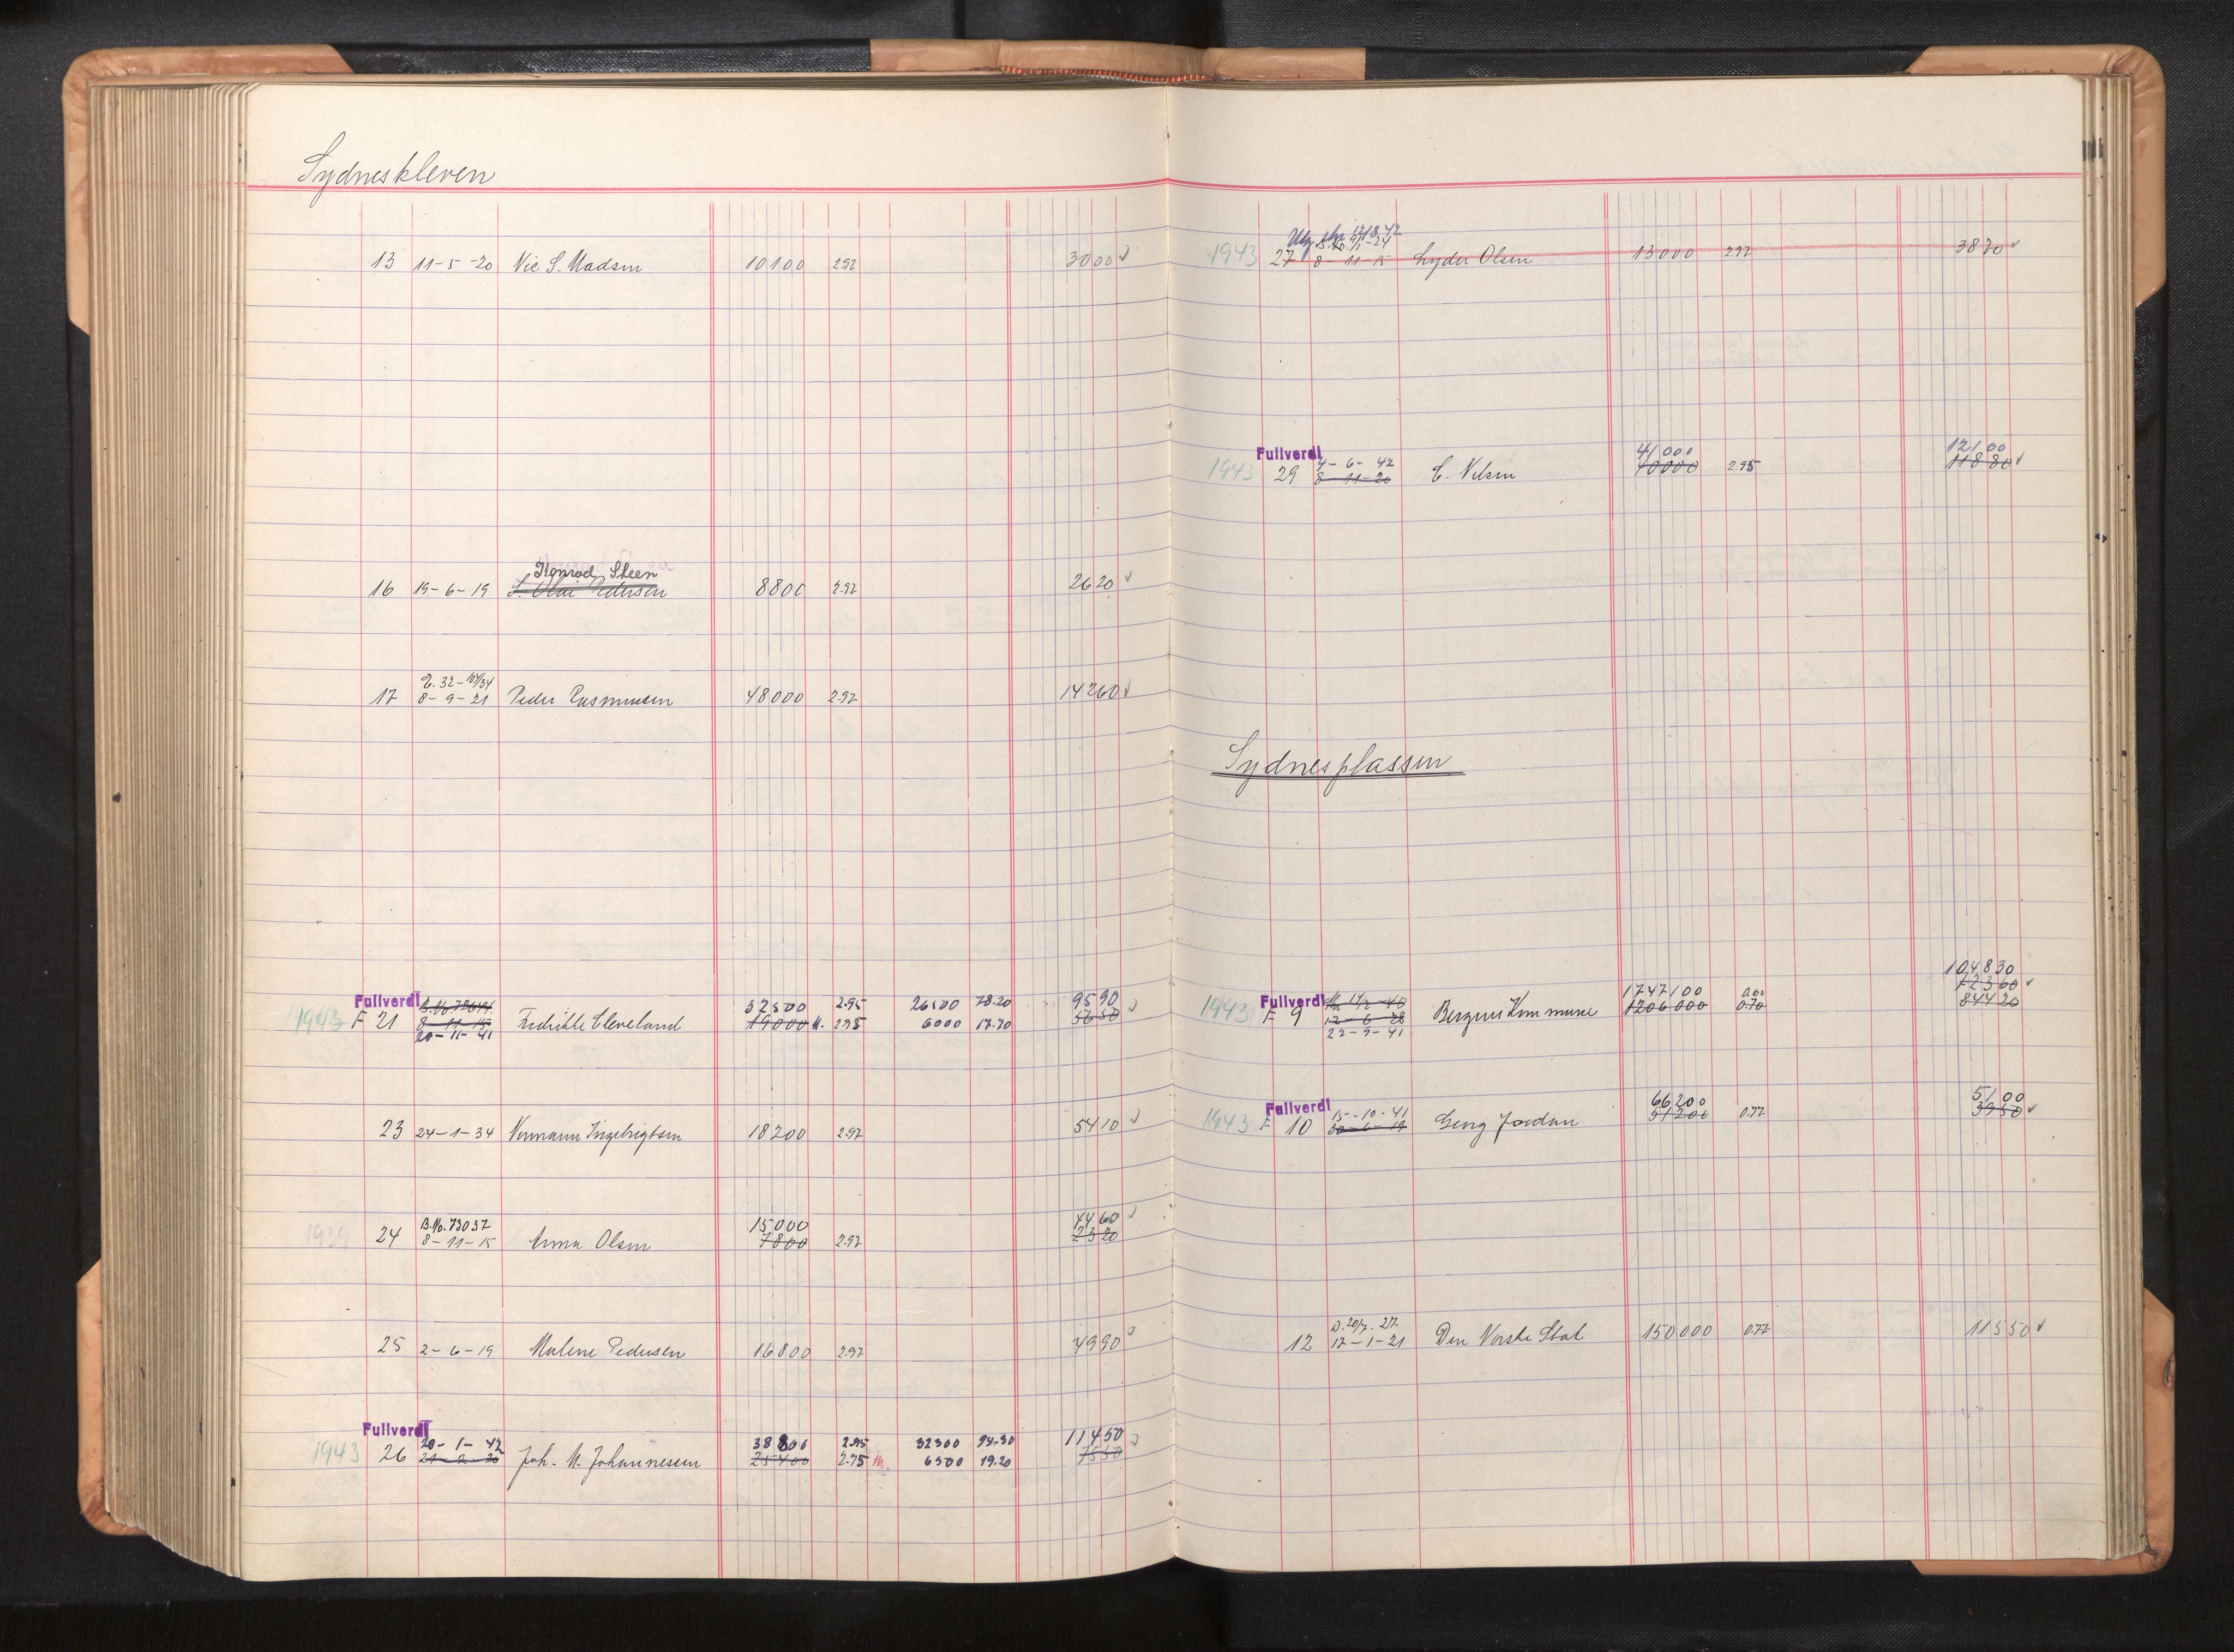 Sydneskleven
13 11-5-20 Nic S. Madsen 10100 2.97 3000 ✓
Konrad Steen
16 19-6-19 S. Olai Pedersen 8800 2.97 2620 ✓
17 8-9-21 Peder Rasmussen 48000 2.97 14260 ✓
Fullverdi 32500 2.95 26500 78.20 9590
1943 F 21 8-11-15 Fredrikke Cleveland 19000 2.95 6000 17.70 5650
20-11-41
23 24-1-34 Normann Ingebrigtsen 18200 2.97 5410
B.No. 73037 15000 4460
1939 24 8-11-15 Anna Olsen 7800 2.97 2320
25 2-6-19 Malene Pedersen 16800 2.97 4990
Fullverdi 20-1-42 38800 2.95 32300 11450
1943 26 21-2-20 Joh. M. Johannesen 25400 2.95 6500 19.20 7550
1943 27 8-11-15 Lyder Olsen 13000 2.97 3870 ✓
Fullverdi 4-6-42 41000 12100
1943 29 8-11-20 C. Nilsen 40000 2.95 11880 ✓
Sydnesplassen
104830
Fullverdi 1747100 0.60 72360
1943 F 9 12-6-28 Bergens Kommune 1206000 0.70 84420
22-9-41
Fullverdi 15-10-41 66200 5100
1943 F 10 30-6-19 Georg Jordan 51200 0.77 3950 ✓
D. 20/7-27
12 17-1-21 Den Norske Stat 150000 0.77 11550 ✓